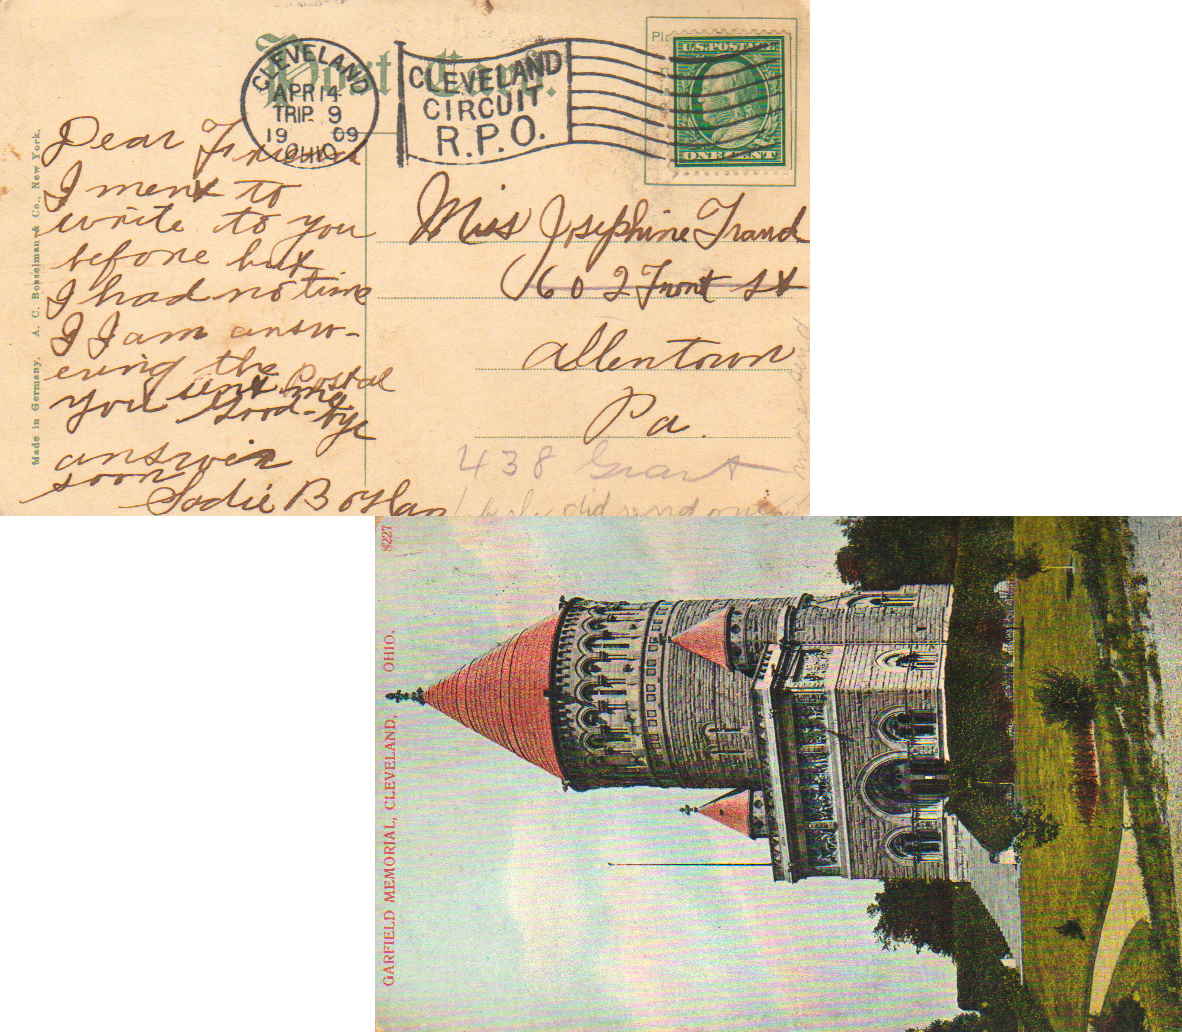 Post Card.
CLEVELAND
APR 14
TRIP 9
19 09
OHIO
CLEVELAND
CIRCUIT
R.P.O.
U.S. POSTAGE
ONE CENT
Made in Germany. A. C. Bosselman & Co., New York.
Dear Friend
I ment to
write to you
before but
I had no time
I I am answ-
ering the
you sent me Postal
Good-bye
answer
soon
Sadie Boylan
Miss Josephine Traud
602 Front St
Allentown
Pa.
438 Grant
did send
8227
GARFIELD MEMORIAL, CLEVELAND, OHIO.